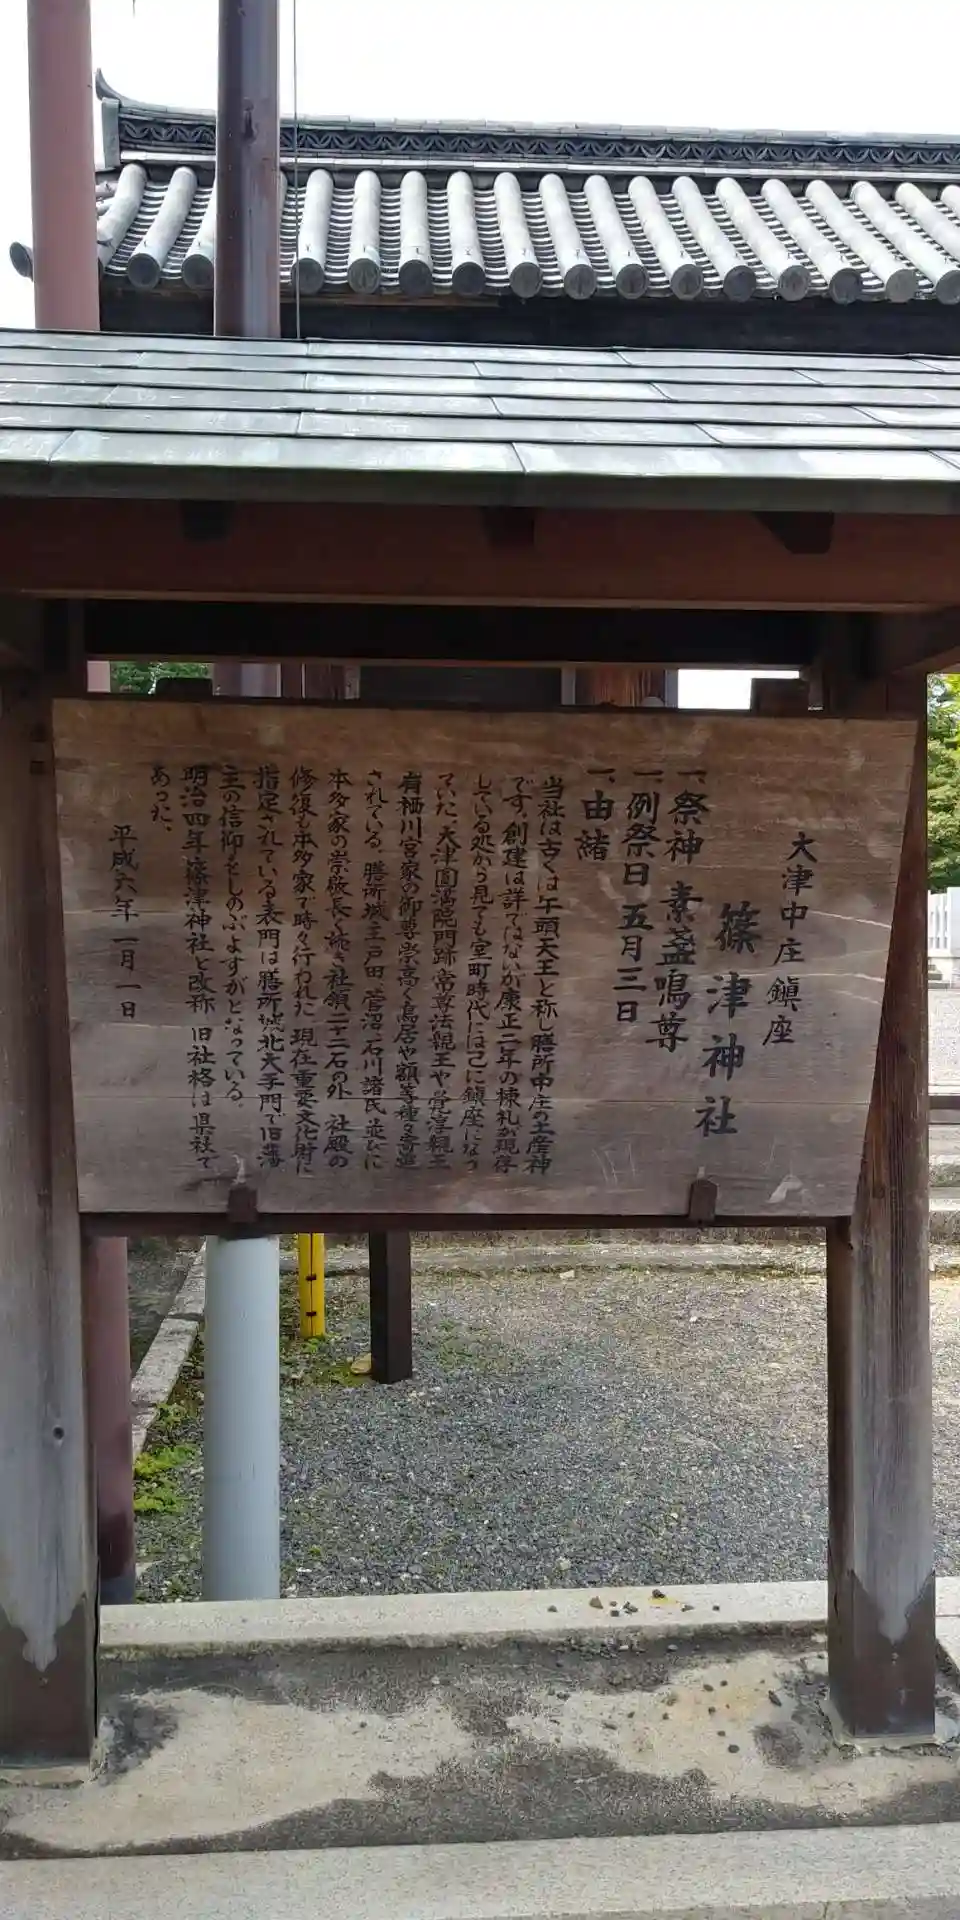 大津中庄 鎮座
篠津神社
一、祭神 素盞鳴尊
一、例祭日 五月三日
一、由緒
当社は古くは午頭天王と称し膳所中庄の土産神
です。創建は詳ではないが康正二年の棟札が現存
している処から見ても室町時代には已に鎮座になっ
ていた。大津圓満院門跡常尊法親王や覚淳親王
有栖川宮家の御尊崇高く鳥居や額等種々寄進
されている。膳所城主戸田、菅沼、石川諸氏並びに
本多家の崇敬長く続き社領二十二石の外、社殿の
修復も本多家で時々行われた。現在重要文化財に
指定されている表門は膳所城北大手門で旧藩
主の信仰をしのぶよすがとなっている。
明治四年篠津神社と改称、旧社格は県社で
あった、
平成六年 一月一日